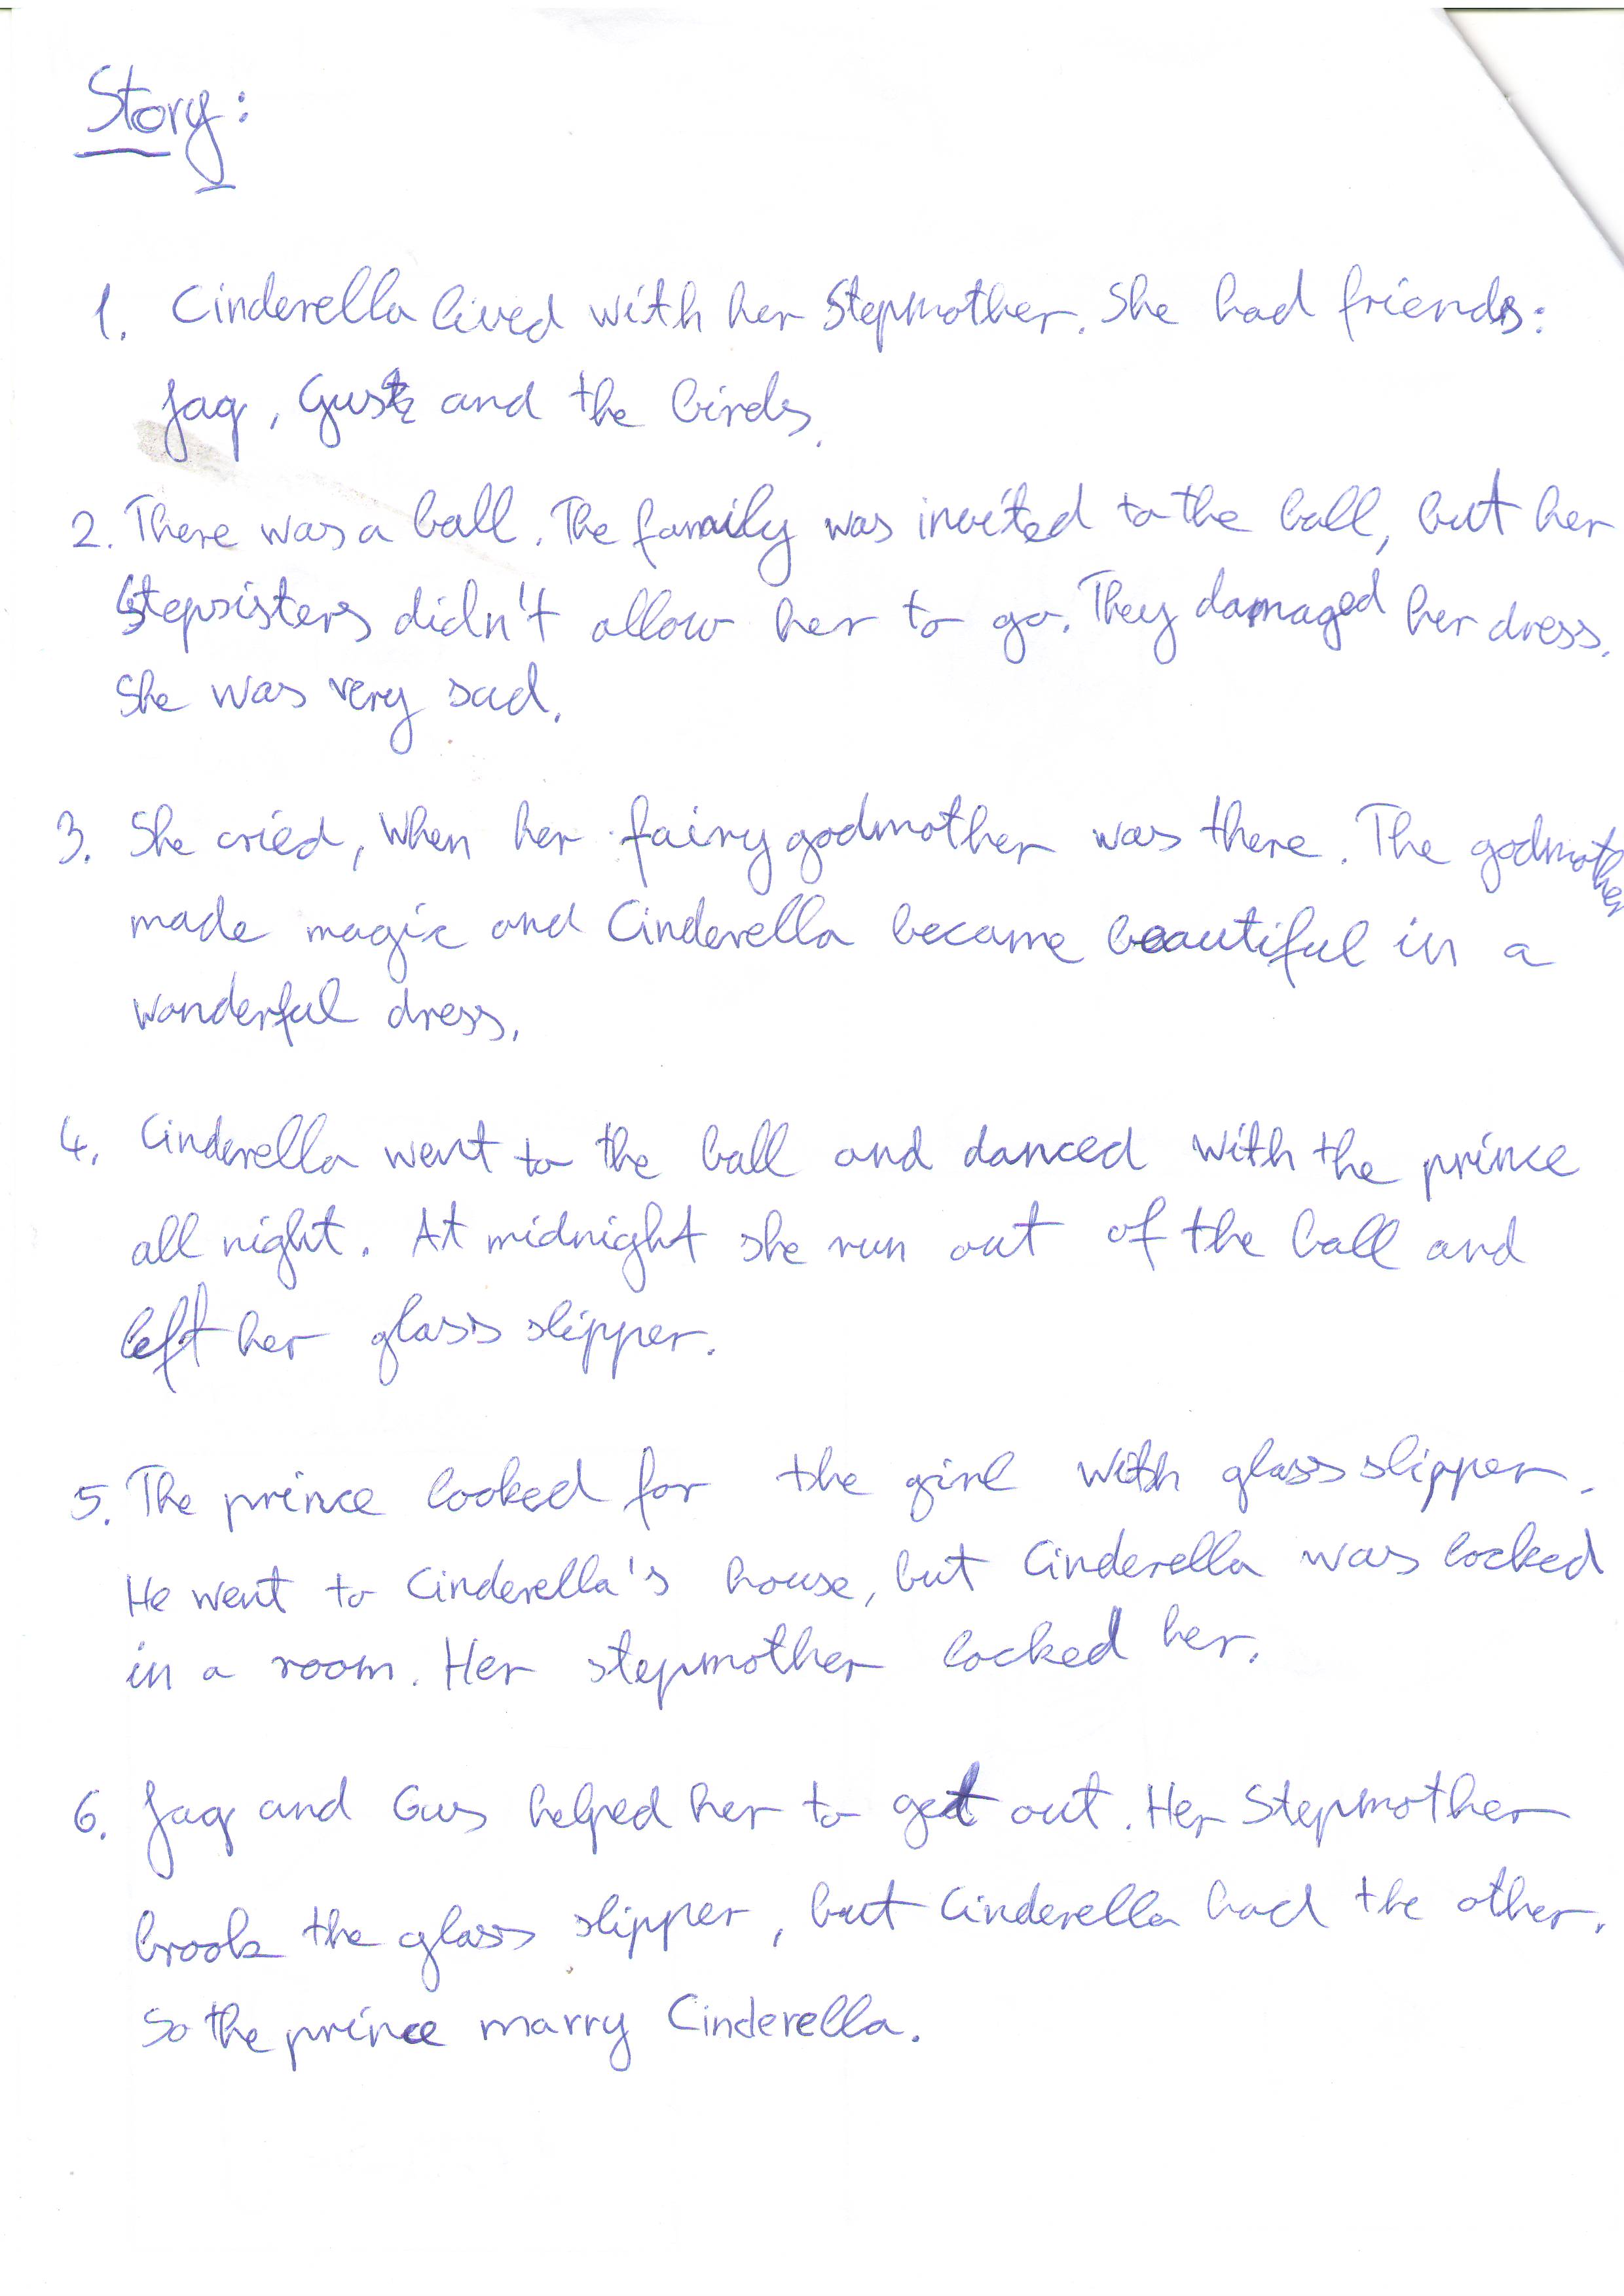 Story:
1. Cinderella lived with her Stepmother. She had friends:
Jaq, Gus and the birds.
2. There was a ball. The family was invited to the ball, but her
Stepsisters didn't allow her to go. They damaged her dress.
She was very sad.
3. She cried, When her fairy godmother was there. The godmother
made magic and Cinderella became beautiful in a
wonderful dress.
4. Cinderella went to the ball and danced with the prince
all night. At midnight she run out of the ball and
left her glass slipper.
5. The prince looked for the girl with glass slipper.
He went to Cinderella's house, but Cinderella was locked
in a room. Her stepmother locked her.
6. Jaq and Gus helped her to get out. Her Stepmother
brook the glass slipper, but Cinderella had the other.
So the prince marry Cinderella.